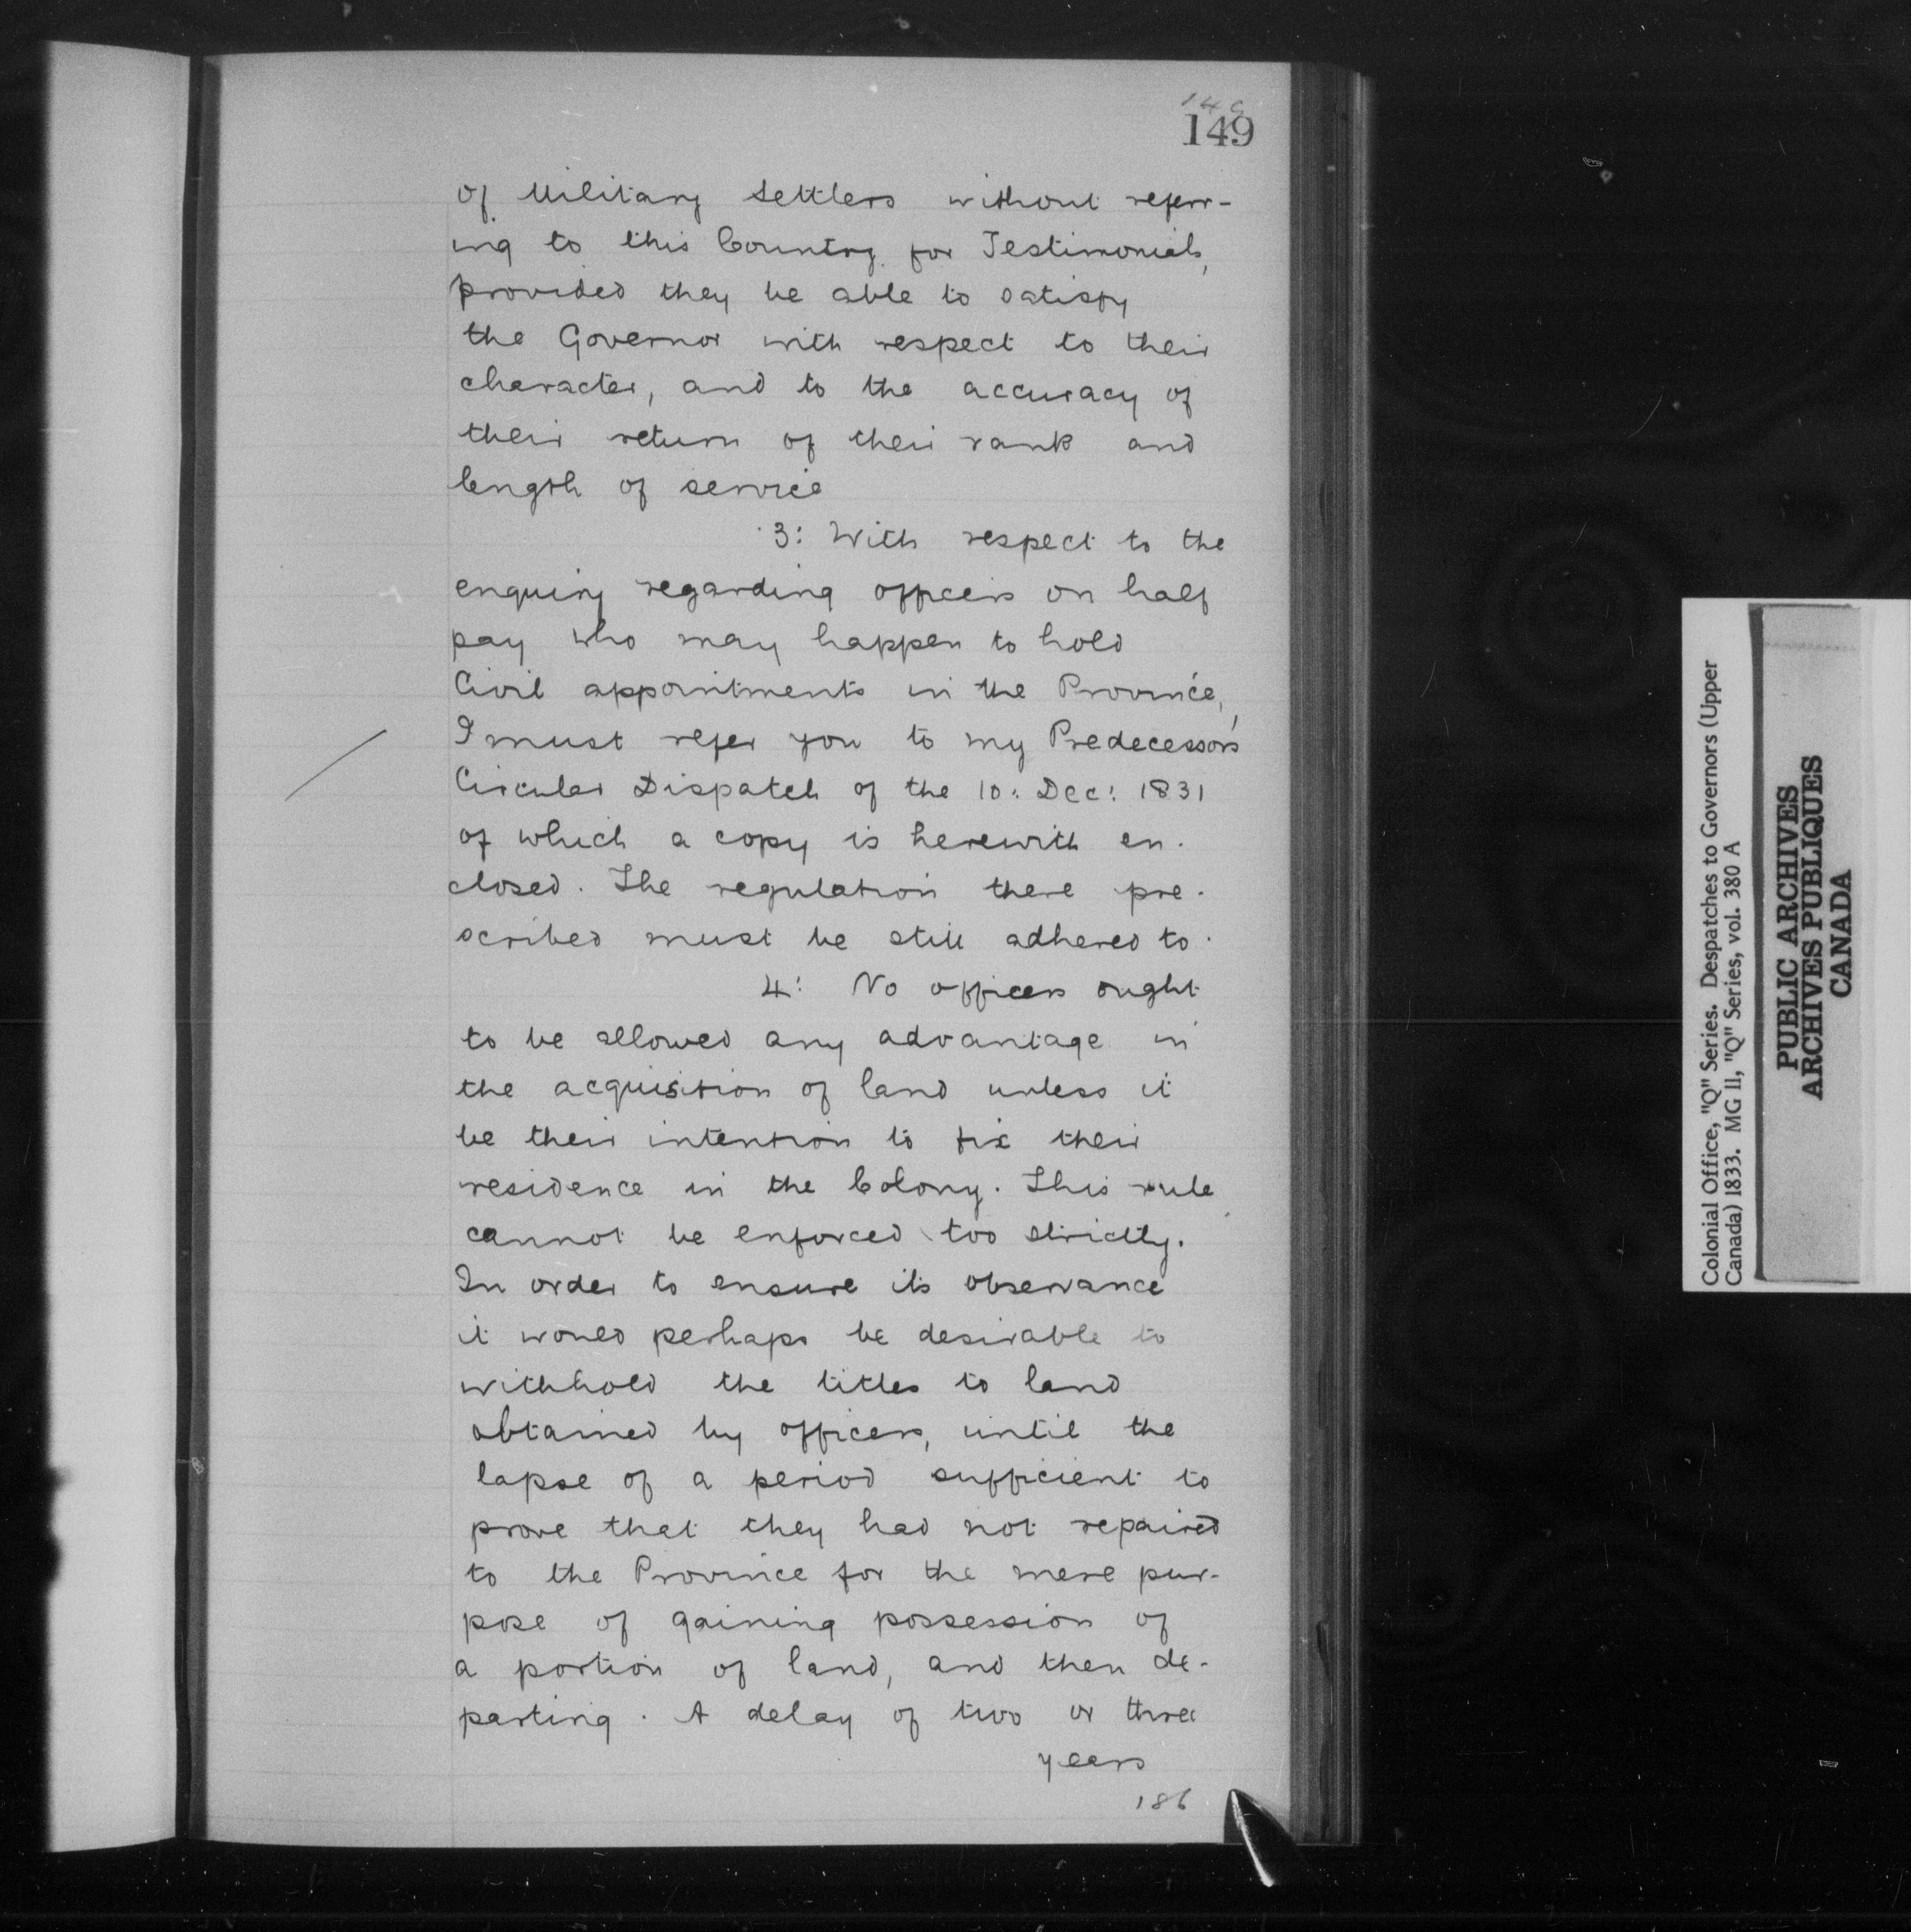 149
149
of Military Settlers without referr-
ing to this Country for Testimonials,
provided they be able to satisfy
the Governor with respect to their
character, and to the accuracy of
their return of their rank and
length of service
3: With respect to the
enquiry regarding officers on half
pay who may happen to hold
Civil appointments in the Province,
I must refer you to my Predecessor's
Circular Dispatch of the 10: Dec: 1831
of which a copy is herewith en-
closed. The regulation there pre-
scribed must be still adhered to.
4: No officers ought
to be allowed any advantage in
the acquisition of land unless it
be their intention to fix their
residence in the Colony. This rule
cannot be enforced too strictly.
In order to ensure its observance
it would perhaps be desirable to
withhold the titles to land
obtained by officers, until the
lapse of a period sufficient to
prove that they had not repaired
to the Province for the mere pur-
pose of gaining possession of
a portion of land, and then de-
parting. A delay of two or three
years
186
Colonial Office, "Q" Series. Despatches to Governors (Upper
Canada) 1833. MG 11, "Q" Series, vol. 380 A
PUBLIC ARCHIVES
ARCHIVES PUBLIQUES
CANADA